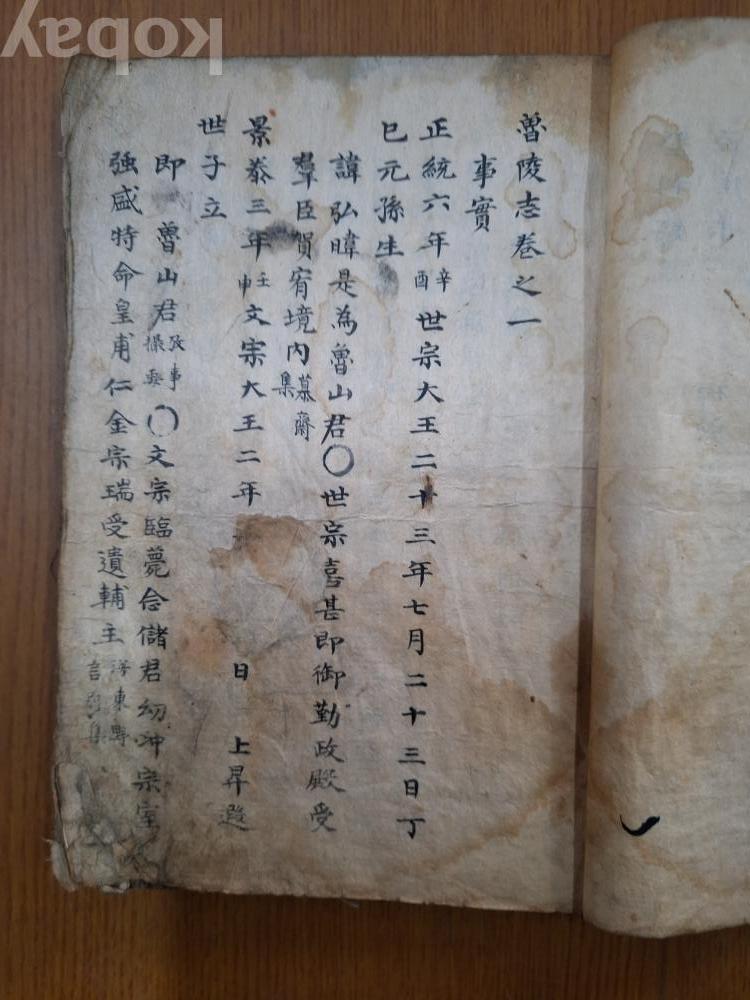 魯陵志卷之一
事實
正統六年辛酉世宗大王二十三年七月二十三日丁
巳元孫生
諱弘暐是為魯山君〇世宗喜甚即御勤政殿受
羣臣賀宥境內慕齋集
景泰三年壬申文宗大王二年 日 上昇遐
世子立
即魯山君攷事撮要〇文宗臨薨念儲君幼冲宗室
強盛特命皇甫仁金宗瑞受遺輔主海東野言
kobay